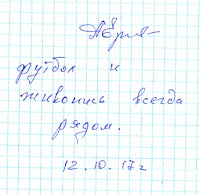 футбол и
живопись всегда
рядом.
12.10.17г